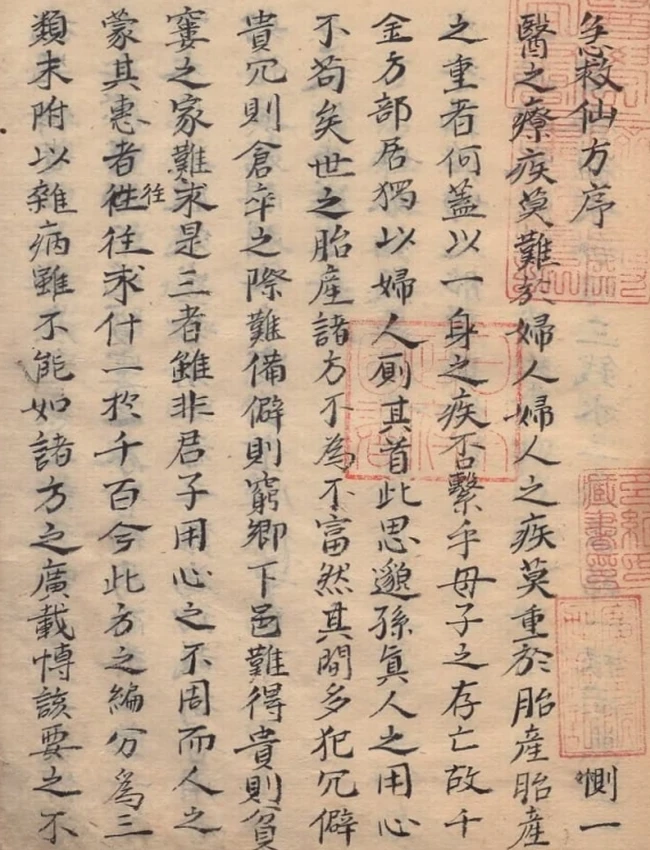 急救仙方序
惻一
醫之療疾莫難於婦人婦人之疾莫重於胎產胎產
之重者何蓋以一身之疾否繫乎母子之存亡故千
金方部居獨以婦人厠其首此思邈孫真人之用心
不苟矣世之胎產諸方不為不富然其間多犯冗僻
貴冗則倉卒之際難備僻則窮鄉下邑難得貴則貧
窶之家難求是三者雖非君子用心之不周而人之
蒙其惠者徃徃往求什一於千百今此方之編分為三
類末附以雜病雖不能如諸方之廣載博該要之不
藏書